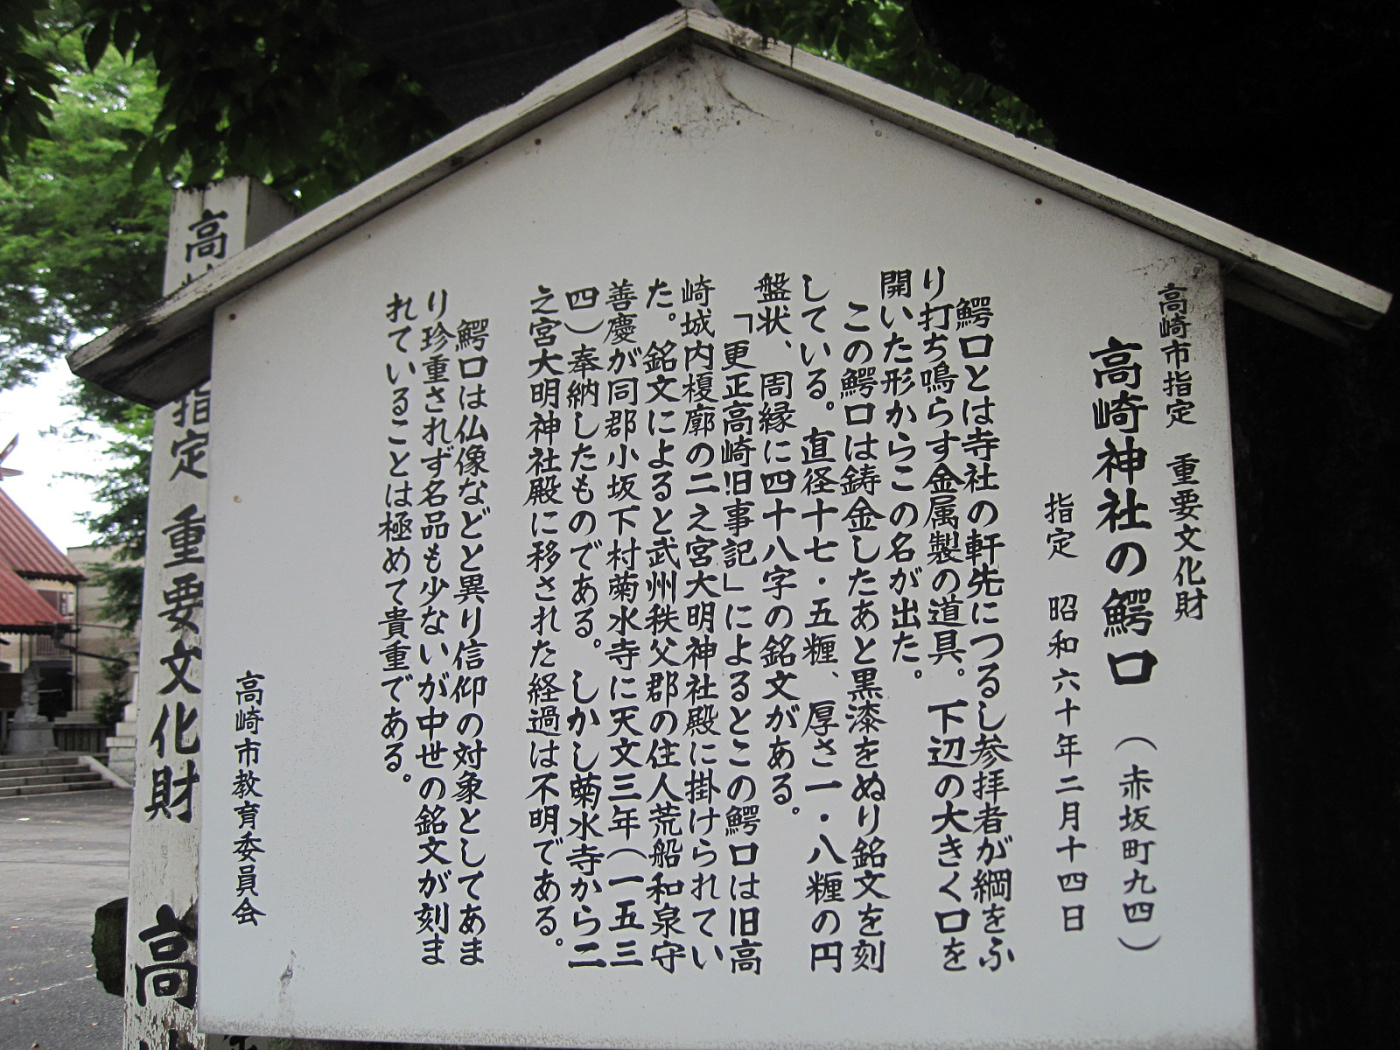 高崎市指定　重要文化財
高崎神社の鰐口（赤坂町九四）
指定　昭和六十年二月十四日
鰐口とは寺社の軒先につるし参拝者が綱をふ
り打ち鳴らす金属製の道具。下辺の大きく口を
開いた形からこの名が出た。
この鰐口は鋳金したあと黒漆をぬり銘文を刻
している。直径十七・五糎、厚さ一・八糎の円
盤状、周縁に四十八字の銘文がある。
「更正高崎旧事記」によるとこの鰐口は旧高
崎城内榎廓の二え宮大明神社殿に掛けられてい
た。銘文によると武州秩父郡の住人荒船和泉守
善慶が同郡小坂下村菊水寺に天文三年（一五三
四）奉納したものである。しかし菊水寺から二
之宮大明神社殿に移された経過は不明である。
鰐口は仏像などと異り信仰の対象としてあま
り珍重されず名品も少ないが中世の銘文が刻ま
れていることは極めて貴重である。
高崎市教育委員会
高
指定 重要文化財
高